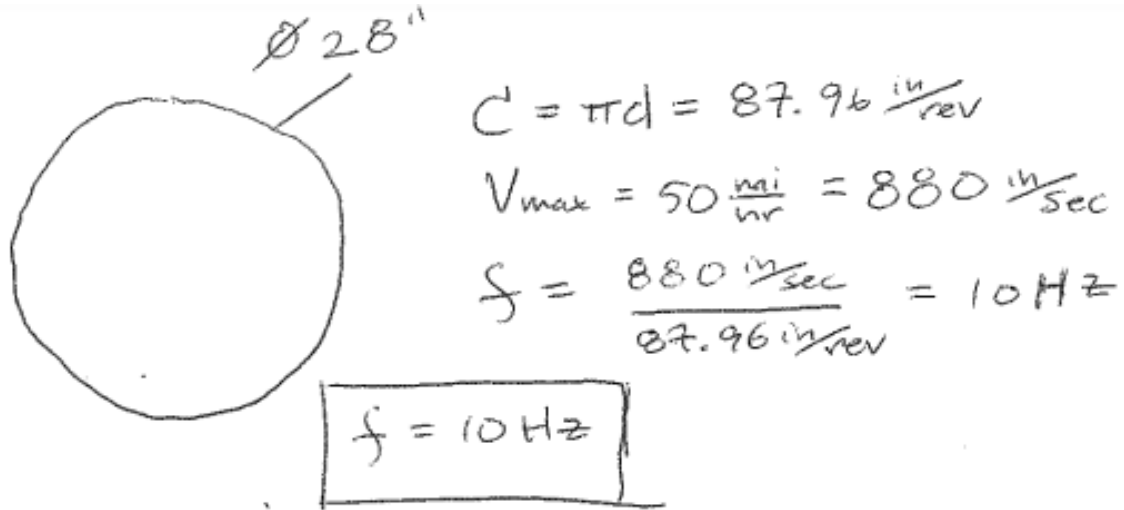 Ø 28"
C = πd = 87.96 in/rev
Vmax = 50 mi/hr = 880 in/sec
f = 880 in/sec / 87.96 in/rev = 10 Hz
f = 10 Hz